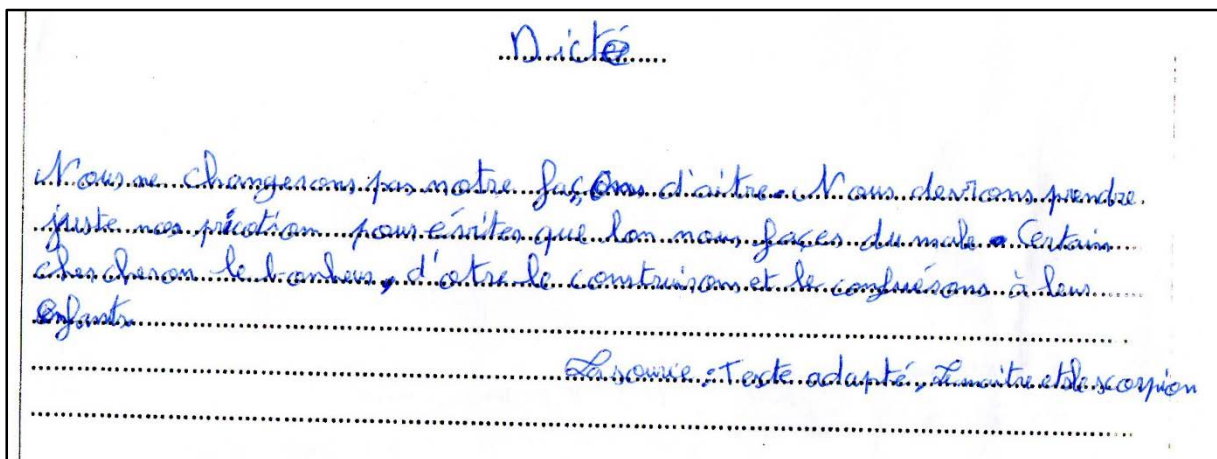 Dictée
Nous ne changerons pas notre façons d'aitre. Nous devrons prendre
juste nos pricotion pour évites que lon nous façes du male. Certain
chercheron le bonheur, d'otre le construison et le confuésons à leur
enfants.
La sourice : Texte adapté, Le maitre et le scorpion